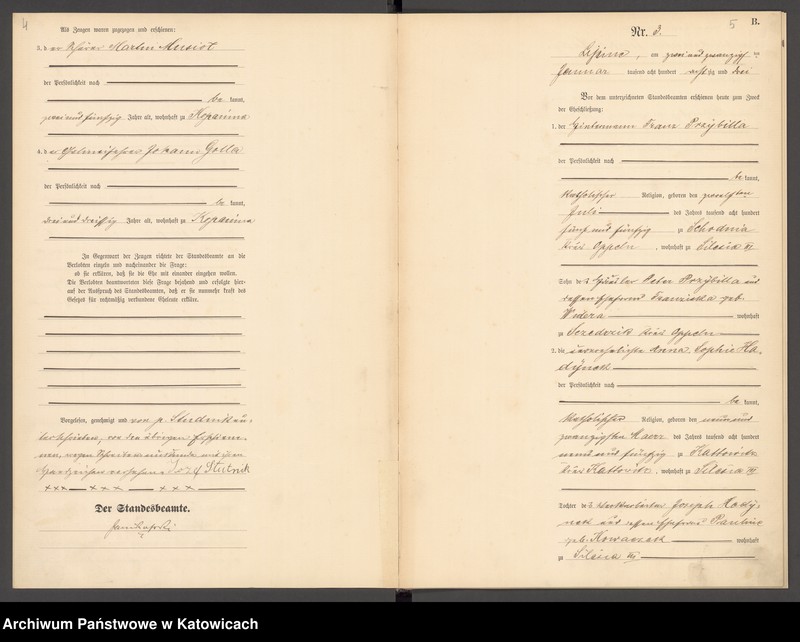 4
Als Zeugen waren zugezogen und erschienen:
3. der Martin Musiol
der Persönlichkeit nach
be kannt,
zwei und fünfzig Jahre alt, wohnhaft zu Kopanina
4. Johann Golla
der Persönlichkeit nach
be kannt,
drei und dreißig Jahre alt, wohnhaft zu Kopanina
In Gegenwart der Zeugen richtete der Standesbeamte an die
Verlobten einzeln und nacheinander die Frage:
ob sie erklären, daß sie die Ehe mit einander eingehen wollen.
Die Verlobten beantworteten diese Frage bejahend und erfolgte hier-
auf der Ausspruch des Standesbeamten, daß er sie nunmehr kraft des
Gesetzes für rechtmäßig verbundene Eheleute erkläre.
Vorgelesen, genehmigt und von p. Studnik un-
terschrieben, von den übrigen Erschiene-
nen, wegen Schreibensunkunde mit ihren
Handzeichen versehen. Josef Stutnik
××× — ××× — ×××
Der Standesbeamte.
5
B.
Nr. 3.
Lipine, am zwei und zwanzigsten
Januar tausend acht hundert achtzig und drei
Vor dem unterzeichneten Standesbeamten erschienen heute zum Zweck
der Eheschließung:
1. der Zinkmann Franz Przybilla
der Persönlichkeit nach
be kannt,
katholischer Religion, geboren den zwölften
Juli des Jahres tausend acht hundert
fünf und fünfzig zu Schodnia
Kreis Oppeln, wohnhaft zu Silesia VI
Sohn des Häusler Peter Przybilla und
dessen Ehefrau Franziska geb.
Widera wohnhaft
zu Sczedrzik Kreis Oppeln
2. die unverehelichte Anna Sophie Ha-
dynek
der Persönlichkeit nach
be kannt,
katholischer Religion, geboren den neun und
zwanzigsten März des Jahres tausend acht hundert
neun und fünfzig zu Kattowitz
Kreis Kattowitz, wohnhaft zu Silesia VII
Tochter des Joseph
und dessen Ehefrau Pauline
geb. Kowaczek wohnhaft
zu Silesia VII
Archiwum Państwowe w Katowicach